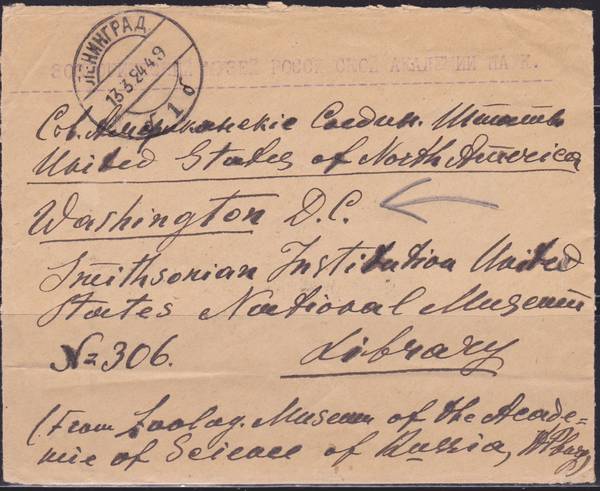 ЛЕНИНГРАД
13.3.24 4.9
1 б
ЗООЛОГИЧЕСКИЙ МУЗЕЙ РОССИЙСКОЙ АКАДЕМИИ НАУК.
Сѣв. Американскіе Соедин. Штаты
United States of North America
Washington D.C.
Smithsonian Institution United
States National Museum
№ 306.
Library
(From Zoolog. Museum of the Acade=
mie of Science of Russia,